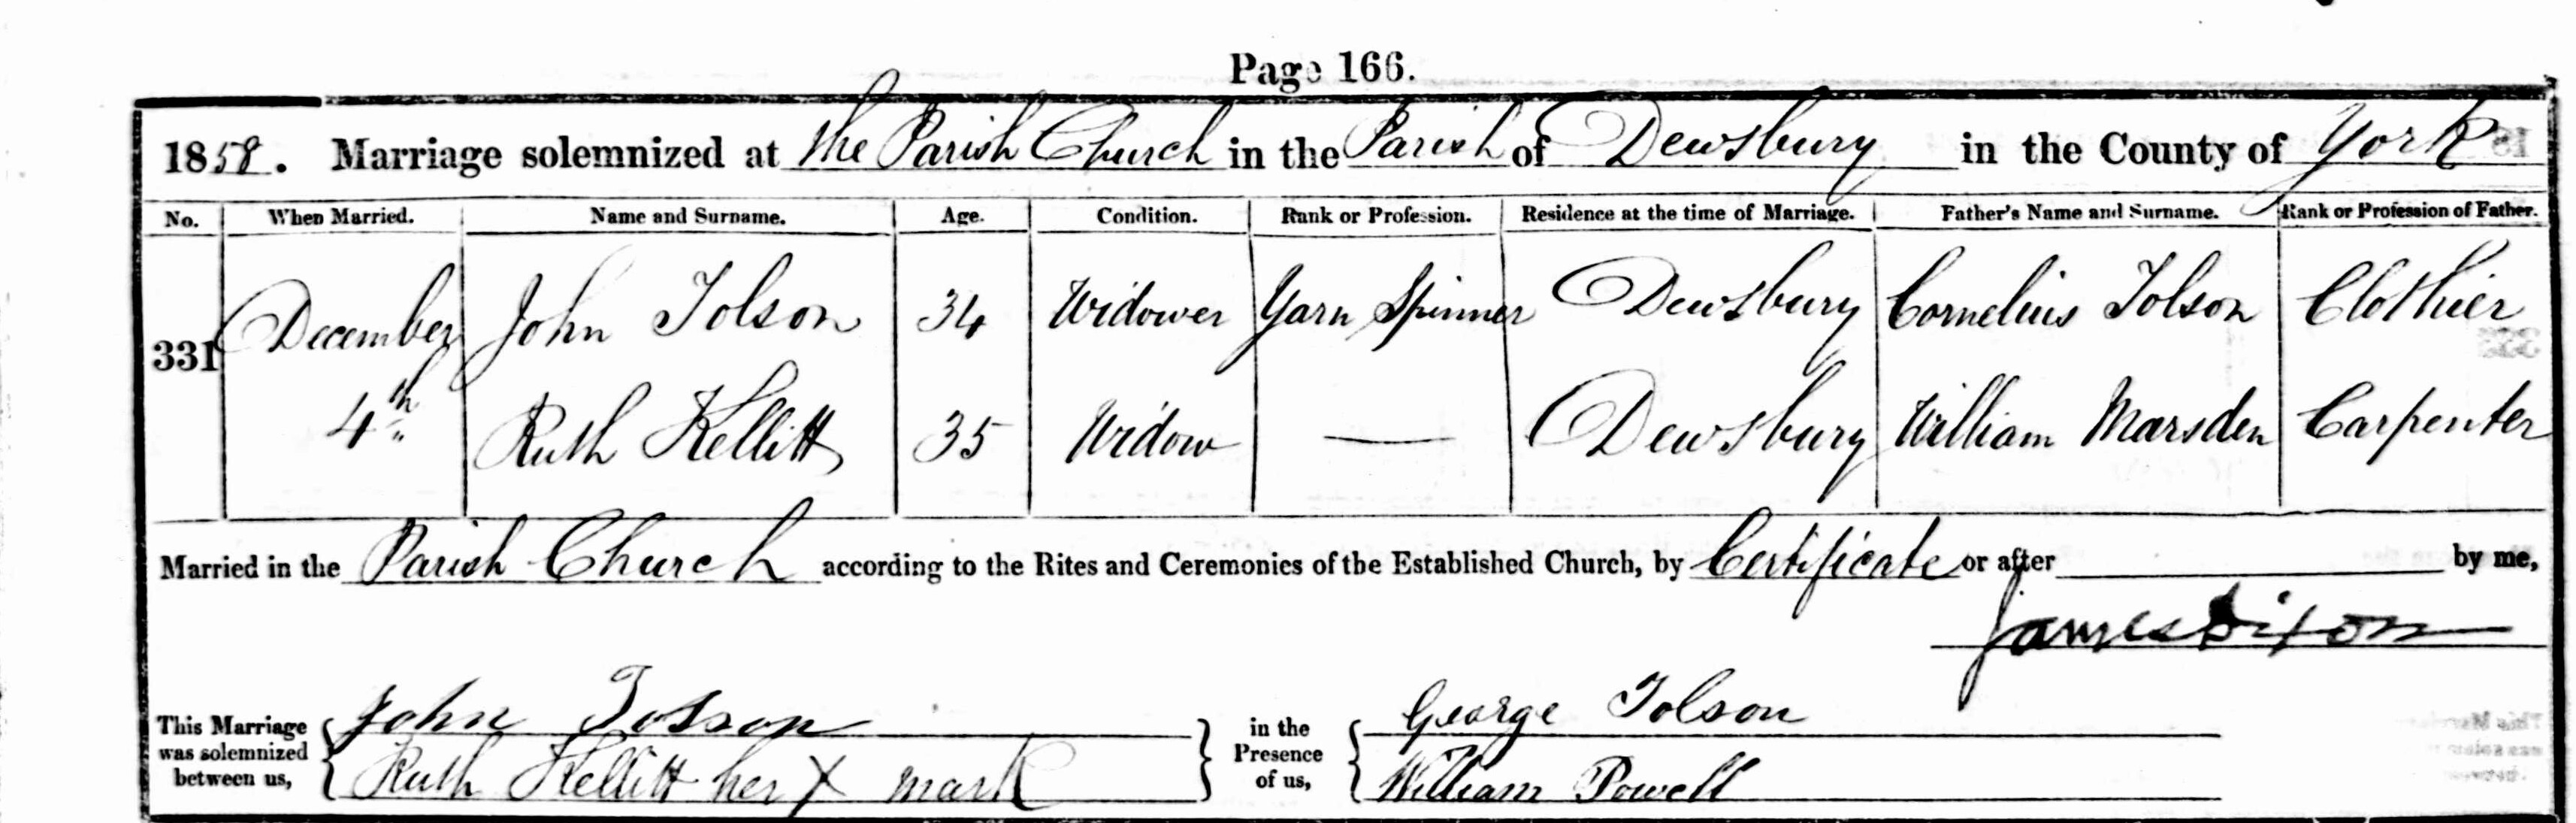 Page 166.
1858. Marriage solemnized at the Parish Church in the Parish of Dewsbury in the County of York
No. When Married. Name and Surname. Age. Condition. Rank or Profession. Residence at the time of Marriage. Father's Name and Surname. Rank or Profession of Father.
December John Tolson 34 Widower Yarn Spinner Dewsbury Cornelius Tolson Clothier
331
4th Ruth Kellitt 35 Widow — Dewsbury William Marsden Carpenter
Married in the Parish Church according to the Rites and Ceremonies of the Established Church, by Certificate or after by me,
James Dixon
This Marriage was solemnized between us,
John Tolson
Ruth Kellitt her X mark
in the Presence of us,
George Tolson
William Powell